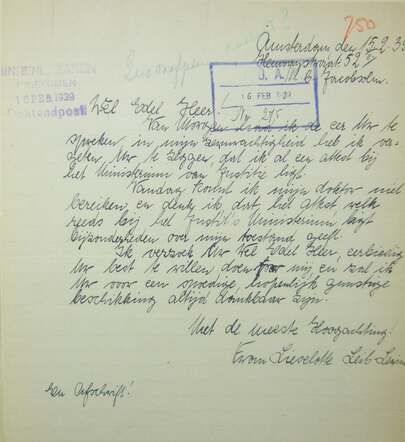 750
Amsterdam den 15/2.39
52
M. G. Jacobsohn.
BINNENL. ZAKEN
16 FEB. 1939
Ochtendpost
16 FEB 1939
Wel Edel Heer!
Van Morgen had ik de eer Uw te
spreken, in mijn zenuwachtigheid heb ik ver-
geten Uw te zeggen, dat ik al een attest bij
het Ministerium van Justitz ligt.
Vandaag konnt ik mijn doktor niet
bereiken, en denk ik dat het attest welk
reeds bij het Justit's Ministerium ligt
bijzonderheden over mijn toestand geeft.
Ik verzoek Uw Wel Edel Heer, eerbiedig
Uw best te willen doen voor mij en zal ik
Uw voor een spoedige, hopenlijk gunstige
beschikking altijd dankbaar zijn.
Met de meeste Hoogachting!
Frau Lieselotte Leib-
Een Afschrift!